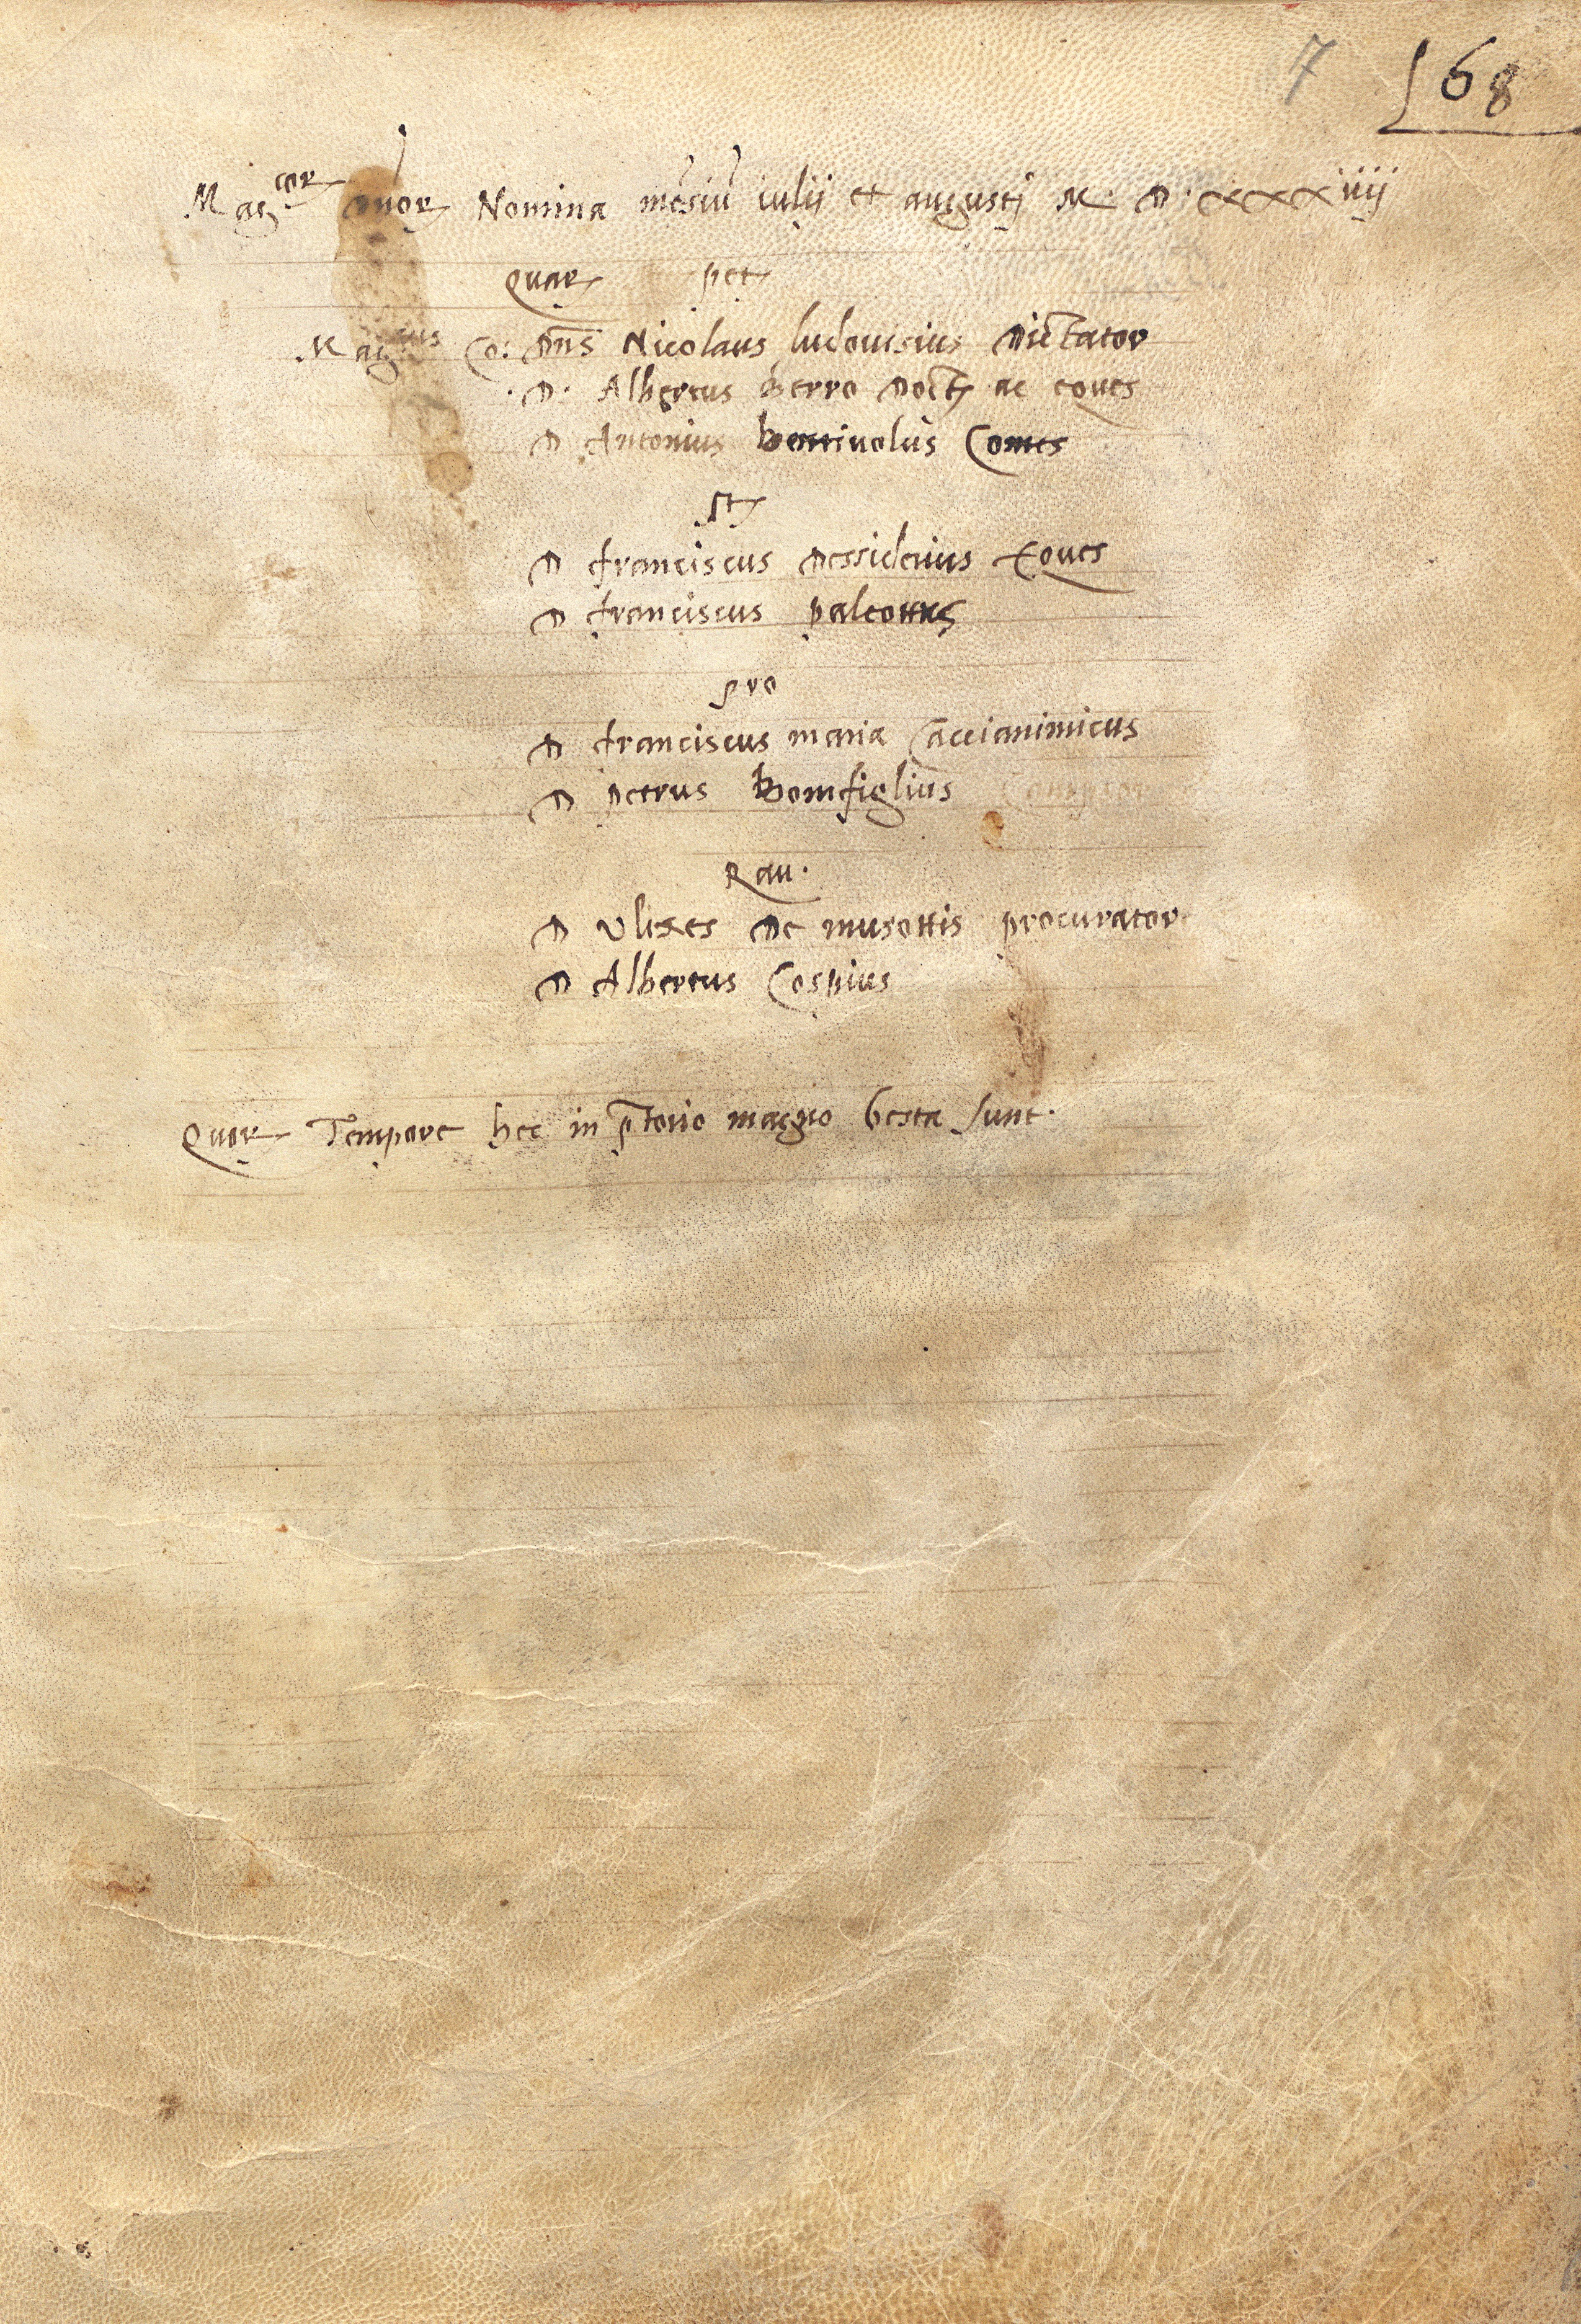 7 168
Mag^cor^ d'nor Nomina me͂siu͂ iulij et augustj M. D. xxxiiij
Quar pet
Mag^cus^ Co: Dn͂s Nicolaus ludouisius Dictator
D. Albertus berro Doct ac eques
D Antonius bentiuolus Comes
St
D franciscus dessiderius Eques
D franciscus paleottus
Pro
D franciscus maria Caccianimicus
D petrus Bomfiglius
Rau.
D Vlixes De musottis procurator
D Albertus Cospius
Quor Tempore hec in p͂torio magno Gesta sunt.